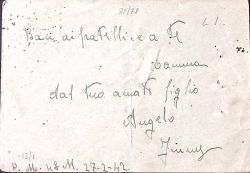 31/78
Baci ai fratelli e a te
mamma
dal tuo amato figlio
Angelo
P. M. 48 M. 27-2-42